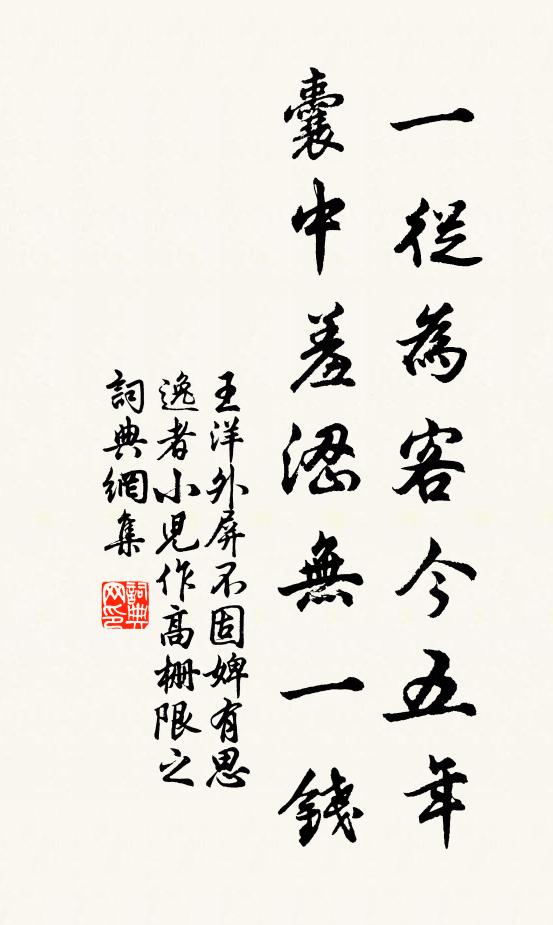 一從為客今五年
囊中羞澀無一錢
王洋外屏不固婢有思
逸者小兒作高柵限之
詞典網集
詞典
网印